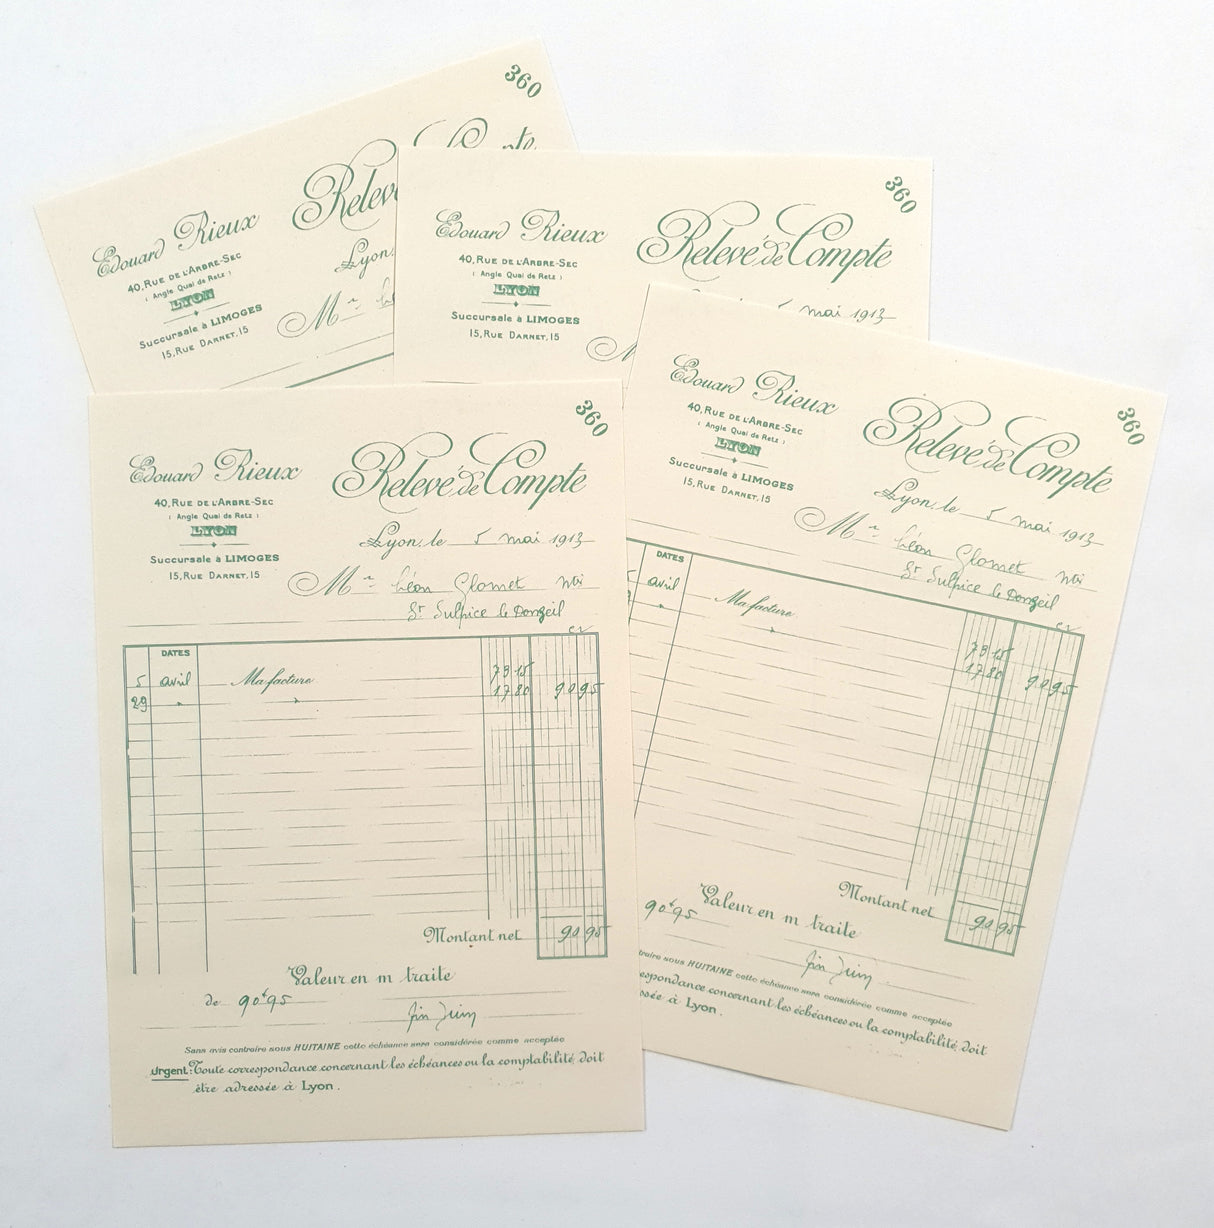 360
Edouard Rieux
Relevé
40, Rue de l'Arbre-Sec
( Angle Quai de Retz )
LYON
Lyon,
Succursale à LIMOGES
15, Rue Darnet, 15
M
360
Edouard Rieux
Relevé de Compte
40, Rue de l'Arbre-Sec
( Angle Quai de Retz )
LYON
Succursale à LIMOGES
15, Rue Darnet, 15
5 mai 1913
M
360
Edouard Rieux
Relevé de Compte
40, Rue de l'Arbre-Sec
( Angle Quai de Retz )
LYON
Succursale à LIMOGES
15, Rue Darnet, 15
Lyon, le 5 mai 1913
Mr Léon Glomet
St Sulpice le Donzeil
DATES
avril Ma facture 73 15
17 80 90 95
Montant net 90 95
Valeur en m traite
90f95
fin Juin
sous HUITAINE cette échéance sera considérée comme acceptée
concernant les échéances ou la comptabilité doit
à Lyon.
360
Edouard Rieux
Relevé de Compte
40, Rue de l'Arbre-Sec
( Angle Quai de Retz )
LYON
Succursale à LIMOGES
15, Rue Darnet, 15
Lyon, le 5 mai 1913
Mr Léon Glomet
St Sulpice le Donzeil
DATES
5 avril Ma facture 73 15
29 " " 17 80 90 95
Montant net 90 95
Valeur en m traite
de 90f95 fin Juin
Sans avis contraire sous HUITAINE cette échéance sera considérée comme acceptée
Urgent: Toute correspondance concernant les échéances ou la comptabilité doit
être adressée à Lyon.